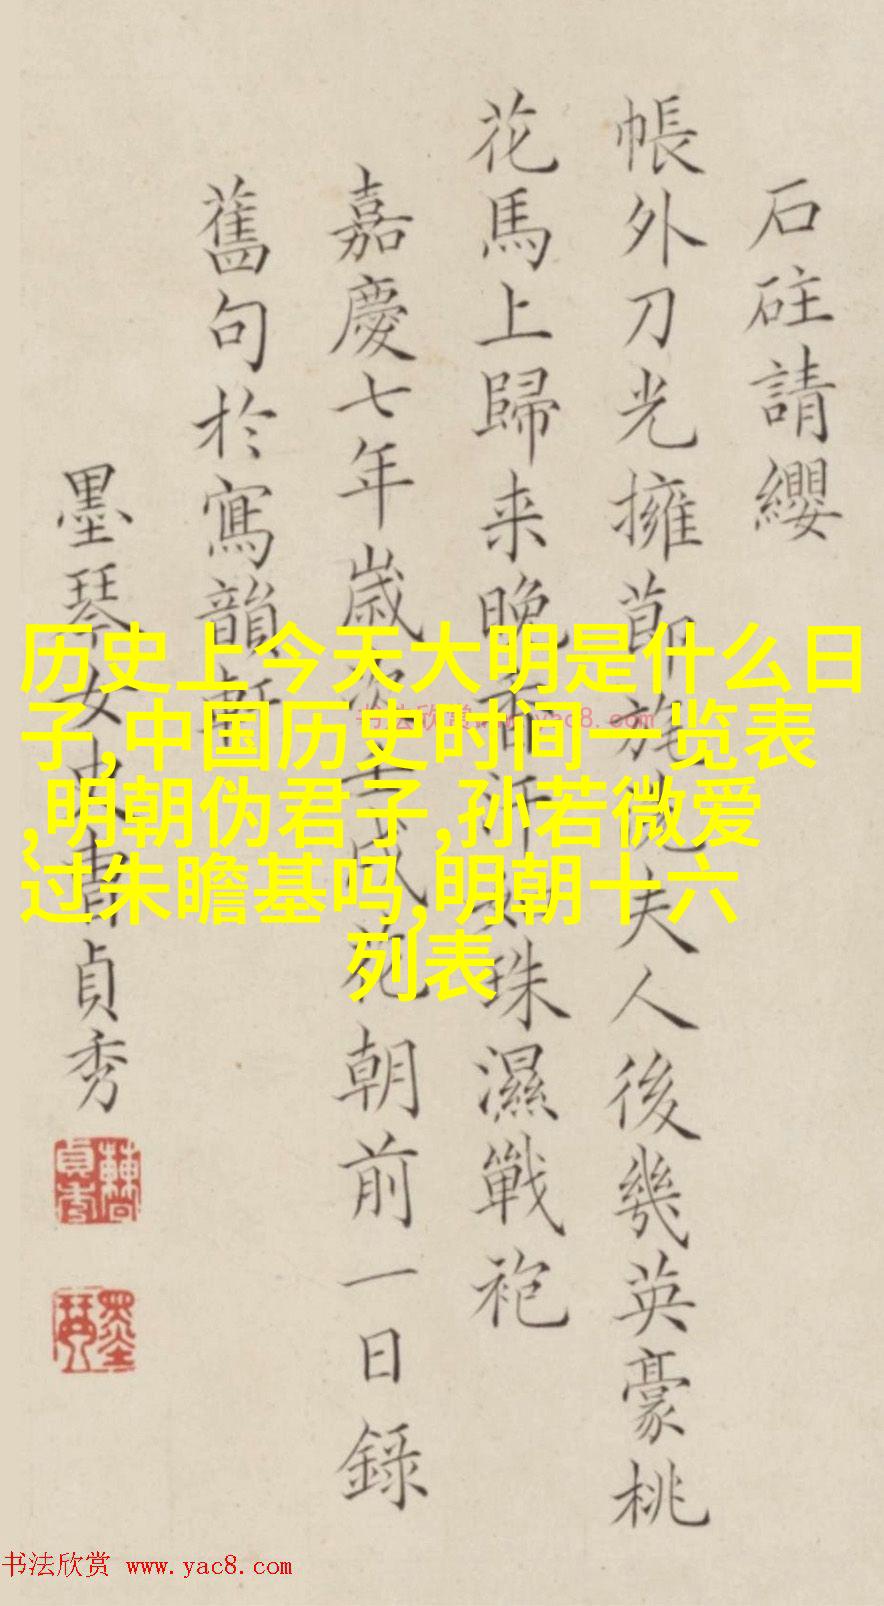 石砫請纓
帳外刀光擁節旄夫人後幾英豪桃
花馬上歸来晚汗如珠濕戰袍
嘉慶七年歲次壬戌花朝前一日錄
舊句於寫韻軒
墨琴女史曹貞秀
墨琴
历史上今天大明是什么日
子,中国历史时间一览表
,明朝伪君子,孙若微爱
过朱瞻基吗,明朝十六
列表
书法欣赏 www.yac8.com
书法欣赏 www.yac8.com